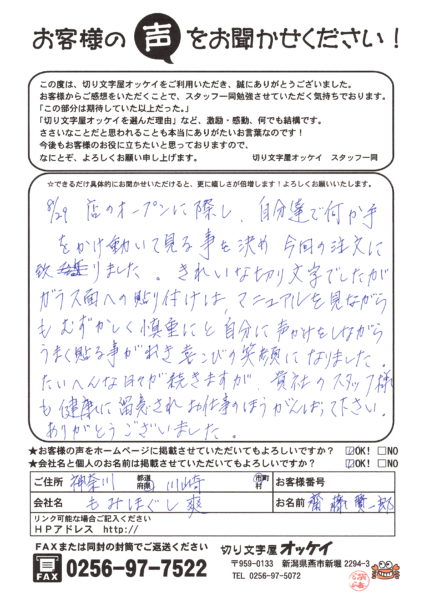 お客様の声をお聞かせください！
この度は、切り文字屋オッケイをご利用いただき、誠にありがとうございました。
お客様からご感想をいただくことで、スタッフ一同勉強させていただく気持ちでおります。
「この部分は期待していた以上だった。」
「切り文字屋オッケイを選んだ理由」など、激励・感動、何でも結構です。
ささいなことだと思われることも本当にありがたいお言葉なのです！
今後もお客様のお役に立ちたいと思っておりますので、
なにとぞ、よろしくお願い申し上げます。 切り文字屋オッケイ スタッフ一同
☆できるだけ具体的にお聞かせいただけると、更に嬉しさが倍増します！よろしくお願いいたします。
8/29 店のオープンに際し、自分達で何か手
をかけ動いて見る事を決め 今回の注文に
致りました。きれいな切り文字でしたが
ガラス面への貼り付けは、マニュアルを見ながら
もむずかしく慎重にと自分に声かけをしながら
うまく貼る事ができ喜こびの笑顔になりました。
たいへんな日々が続きますが、貴社のスタッフ様
も健康に留意されお仕事のほうがんばって下さい。
ありがとうございました。
★お客様の声をホームページに掲載させていただいてもよろしいですか？ ☑OK! □NO
★会社名と個人のお名前は掲載させていただいてもよろしいですか？ ☑OK! □NO
ご住所 神奈川 都道府県 川崎 市町村 お客様番号
会社名 もみほぐし爽 お名前 齋藤賢一郎
リンク可能な場合ご記入ください
ＨＰアドレス http://
FAXまたは同封の封筒でご返送ください
FAX 0256-97-7522
切り文字屋オッケイ
〒959-0133 新潟県燕市新堀 2294-3
TEL 0256-97-5072